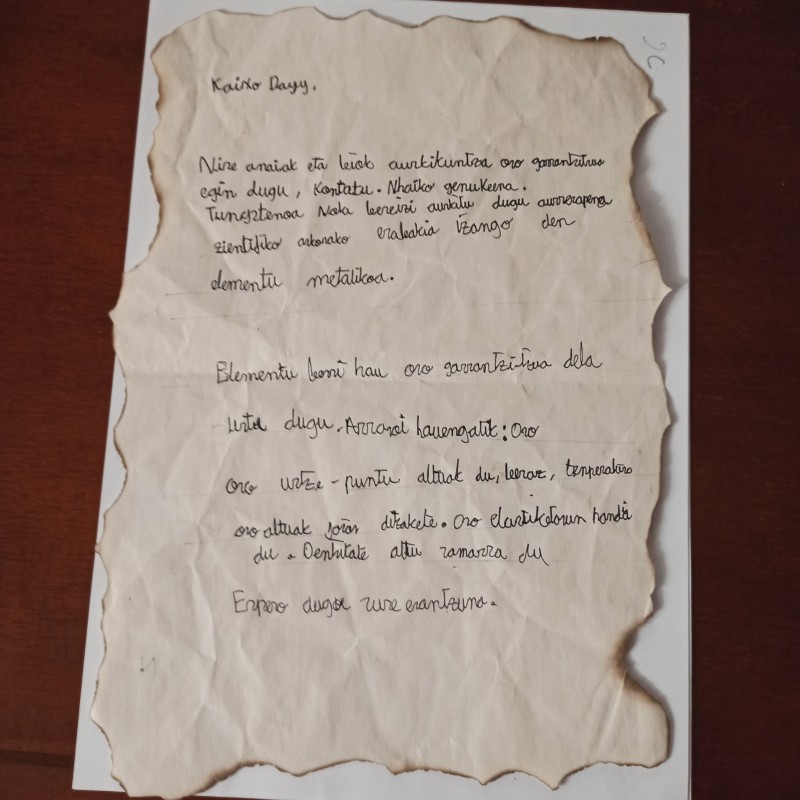 Kaixo Davy.
Nire anaiak eta leiok aurkikuntza oro garrantzitsua
egin dugu, Kontatu. Nhaiko genukeena.
Tungstenoa Nola bereizi aurkitu dugu aurrerapena
zientifiko askorako erabakia izango den
elementu metalikoa.
Elementu berri hau oro garrantzi-tsua dela
uste dugu. Arrazoi hauengatik: Oro
oro urtze-puntu altuak du, beraz, tenperatura
oro altuak jasan ditzakete. Oro elastikotasun handia
du. Dentsitate altu xamarra du
Espero dugu zure erantzuna.